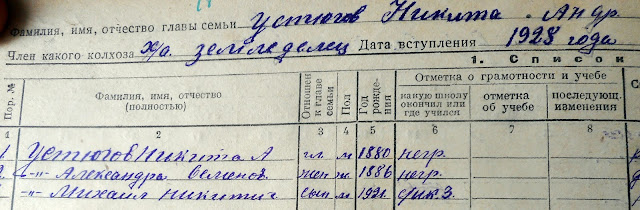 Фамилия, имя, отчество главы семьи Устюгов Никита Андр.
Член какого колхоза х/а. земледелец Дата вступления 1928 года
1. Список
Пор. №
Фамилия, имя, отчество (полностью)
Отношен. к главе семьи
Пол
Год рождения
Отметка о грамотности и учебе
какую школу окончил или где учился
отметка об учебе
последующ. изменения
1 2 3 4 5 6 7 8
1. Устюгов Никита А гл. м 1880 негр.
2. -"- Александра Семенов. жен ж. 1886 негр.
-"- Михаил Никитич сын м 1921